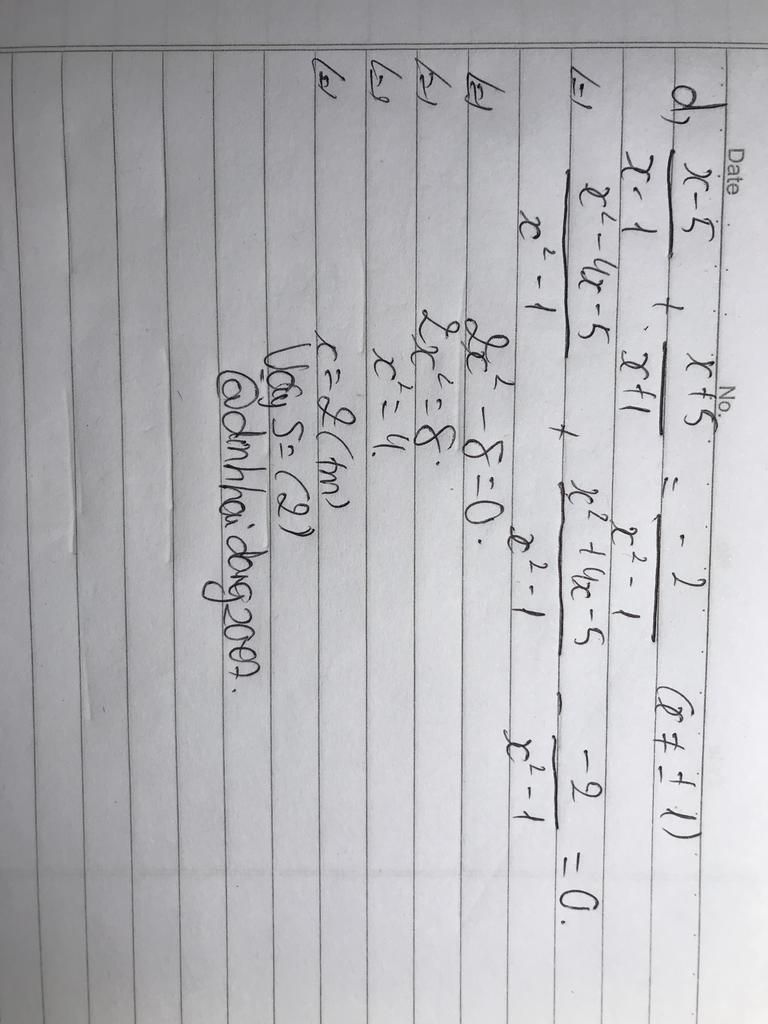 Date No.
d, x-5/x-1 + x+5/x+1 = -2/x²-1 (x ≠ ±1)
(=) x²-4x-5/x²-1 + x²+4x-5/x²-1 - -2/x²-1 = 0.
(=) 2x² - 8 = 0.
(=) 2x² = 8.
(=) x² = 4.
(=) x = 2 (tm)
Vậy S = (2)
@dinhhaidang2007.